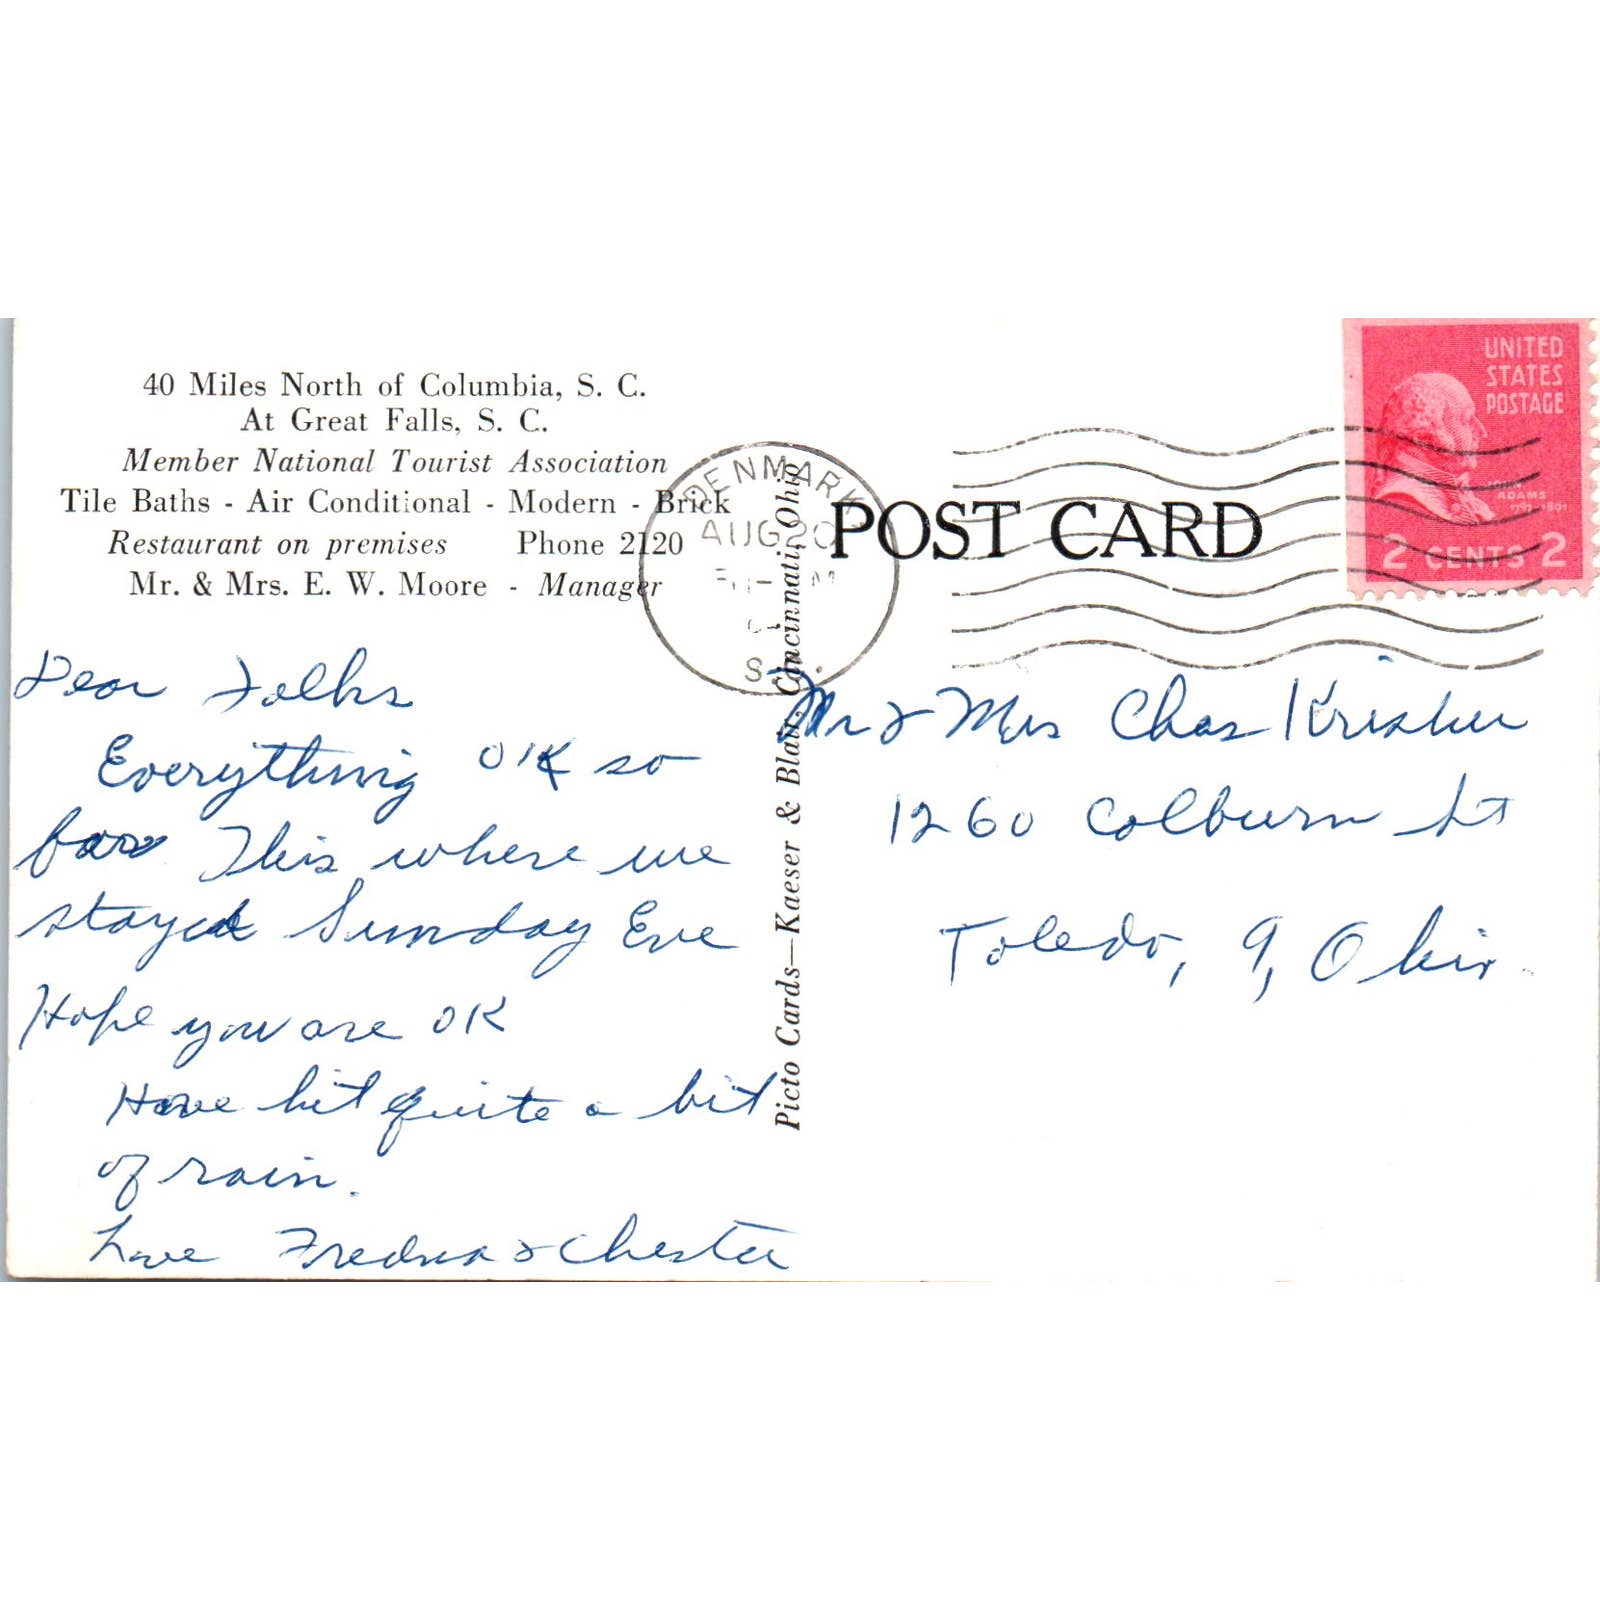 40 Miles North of Columbia, S. C.
At Great Falls, S. C.
Member National Tourist Association
Tile Baths - Air Conditional - Modern - Brick
Restaurant on premises Phone 2120
Mr. & Mrs. E. W. Moore - Manager
Dear Folks
Everything OK so
far This where we
stayed Sunday Eve
Hope you are OK
Have hit quite a bit
of rain.
Love Fredna & Chester
Picto Cards—Kaeser & Blair, Cincinnati, Ohio
DENMARK
AUG 20
S.C.
POST CARD
UNITED
STATES
POSTAGE
JOHN
ADAMS
1797-1801
2 CENTS 2
Mr & Mrs Chas Krisher
1260 Colburn St
Toledo, 9, Ohio.